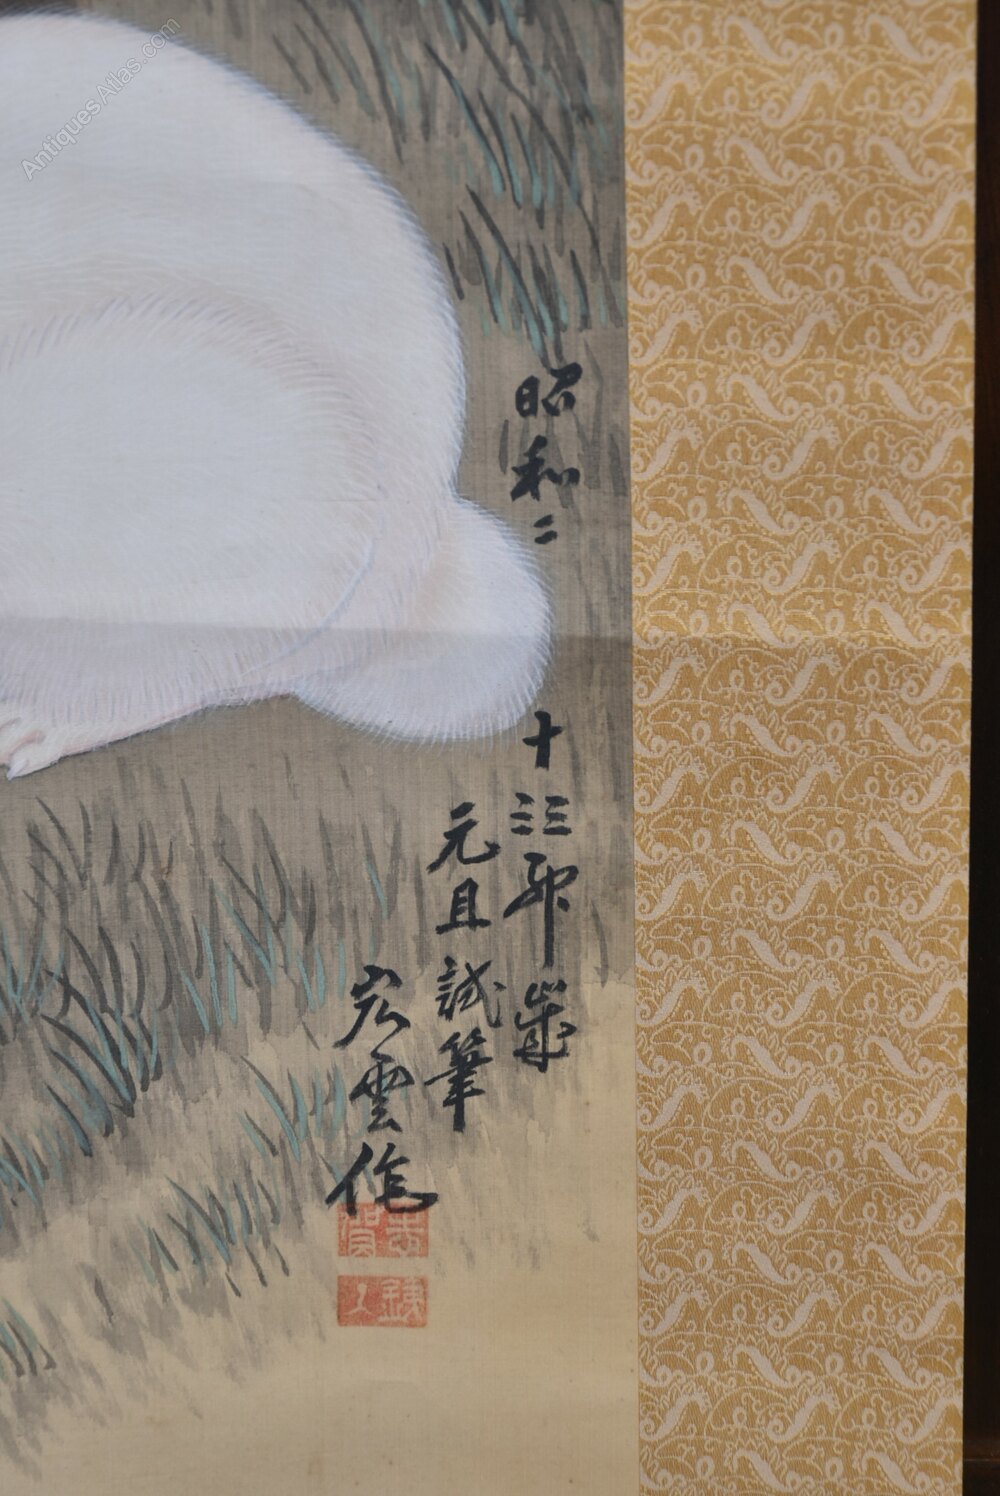 昭和二
十三卯歳
元旦誠筆
宏雲作
AntiquesAtlas.com